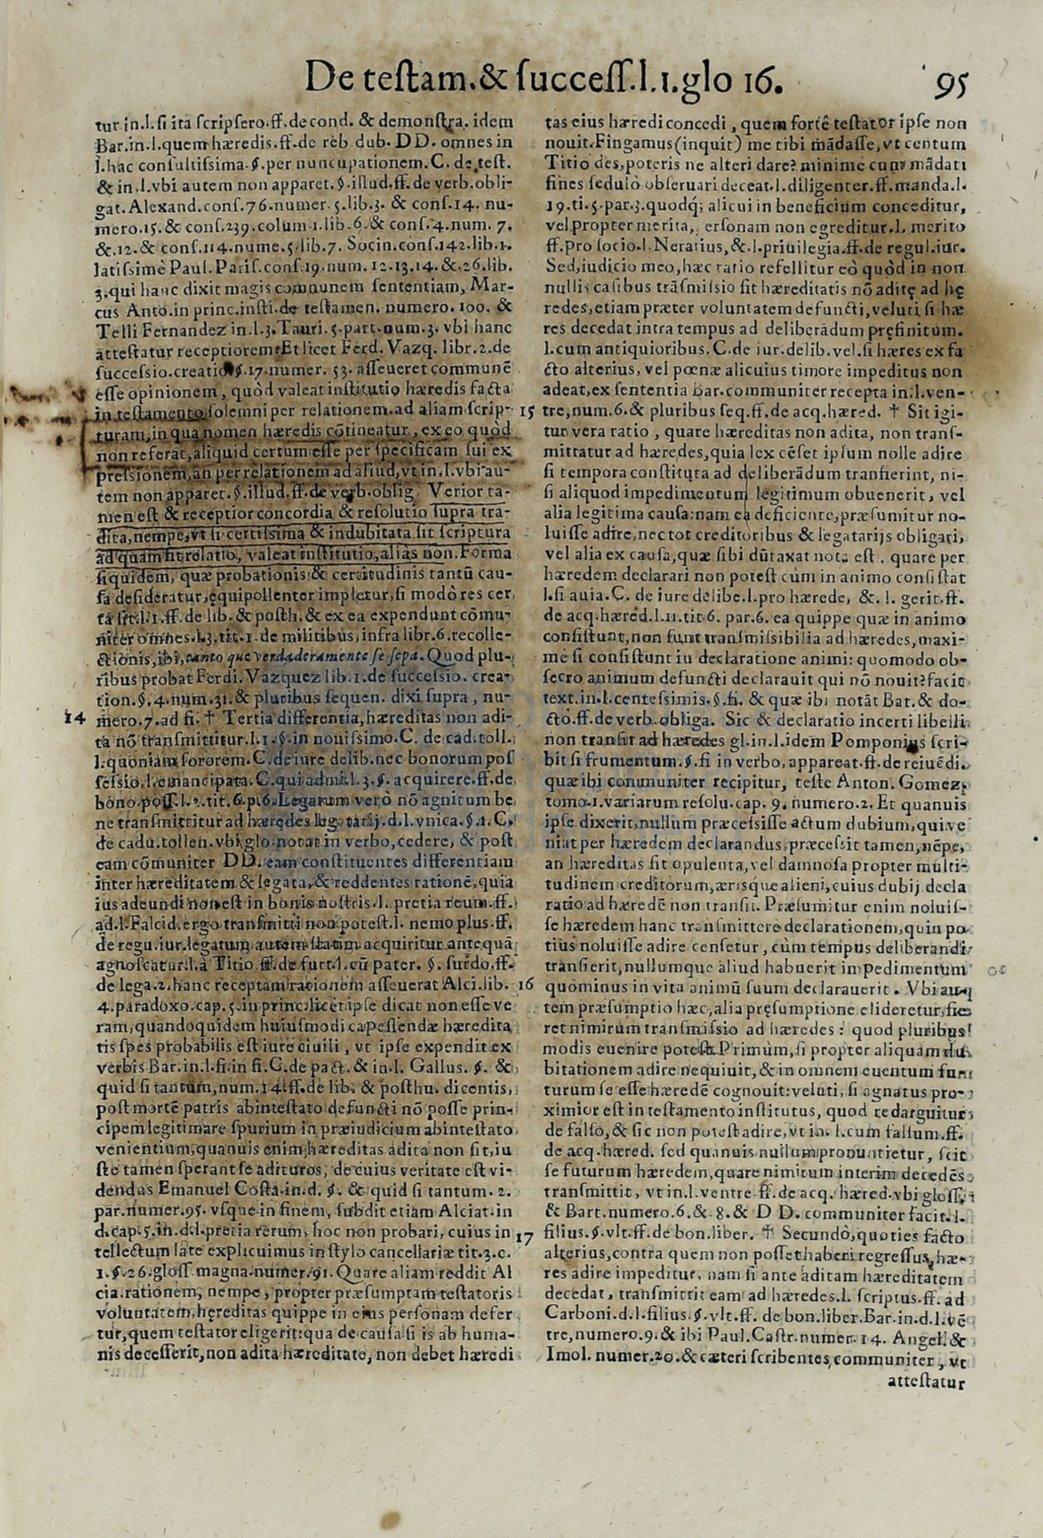 De teſtam.& ſucceſſ.l.1.glo 16. 95
tur in.l.ſi ita ſcripſero.ff.de cond. & demonſtra. idem
Bar.in.l.quem hæredis.ff.de reb dub. DD. omnes in
l.hac conſultiſsima.§.per nuncupationem.C. de teſt.
& in.l.vbi autem non apparet.§.illud.ff.de verb.obli-
gat. Alexand.conſ.76.numer.5.lib.3. & conſ.14. nu-
mero.15.& conſ.239.colum.1.lib.6.& conſ.4.num. 7.
&.12.& conſ.114.nume.5.lib.7. Socin.conſ.142.lib.1.
latiſsimè Paul.Pariſ.conſ.19.num. 12.13.14.&.26.lib.
3.qui hanc dixit magis communem ſententiam, Mar-
cus Anto.in princ.inſti.de teſtamen. numero.100. &
Telli Fernandez in.l.3.Tauri.5.part.num.3. vbi hanc
atteſtatur receptiorem.Et licet Ferd. Vazq. libr.2.de
ſucceſsio.creatio.§.17.numer. 53. aſſeueret communē
eſſe opinionem, quòd valeat inſtitutio hæredis facta
in teſtamento ſolemni per relationem.ad aliam ſcrip-
turam,in qua nomen hæredis cōtineatur, ex eo quòd
non referat,aliquid certum eſſe per ſpecificam ſui ex
preſsionem,an per relationem ad aliud,vt in.l.vbi au-
tem non apparet.§.illud.ff.de verb.oblig. Verior ta-
men eſt & receptior concordia & reſolutio ſupra tra-
dita,nempe,vt ſi certiſsima & indubitata ſit ſcriptura
ad quam fit relatio, valeat inſtitutio,alias non.Forma
ſiquidem, quæ probationis & certitudinis tantū cau-
ſa deſideratur,ęquipollenter impletur,ſi modò res cer
ta ſit.l.1.ff.de lib. & poſth. & ex ea expendunt cōmu-
niter omnes.l.3.tit.1.de militibus,infra libr.6.recolle-
ctionis,ibi,tanto que verdaderamente ſe ſepa. Quod plu-
ribus probat Ferdi. Vazquez lib.1.de ſucceſsio. crea-
tion.§.4.num.31.& pluribus ſequen. dixi ſupra, nu-
14 mero.7.ad fi.† Tertia differentia,hæreditas non adi-
ta nō tranſmittitur.l.1.§.in nouiſsimo.C. de cad.toll.
l.quoniam ſororem.C.de iure delib.nec bonorum poſ
ſeſsio.l.emancipata.C.qui admi.l.3.§. acquirere.ff.de
bono.poſſ.l.2.tit.6.p.6.Legatum verò nō agnitum be
ne tranſmittitur ad hæredes legatarij.d.l.vnica.§.1.C.
de cadu.tollen.vbi glo.notat in verbo,cedere, & poſt
eam cōmuniter DD. eam conſtituentes differentiam
inter hæreditatem & legata,& reddentes rationē,quia
ius adeundi non eſt in bonis noſtris.l. pretia rerum.ff.
ad.l.Falcid.ergo tranſmitti non poteſt.l. nemo plus.ff.
de regu.iur.legatum autem ſtatim acquiritur ante quā
agnoſcatur.l.à Titio.ff.de furt.l.cū pater. §. ſurdo.ff.
de lega.2.hanc receptam rationem aſſeuerat Alci.lib.
4.paradoxo.cap.5.in princ.licet ipſe dicat non eſſe ve
ram,quandoquidem huiuſmodi capeſſendæ hæredita
tis ſpes probabilis eſt iure ciuili, vt ipſe expendit ex
verbis Bar.in.l.fi.in fi.C.de pact. & in.l. Gallus. §. &
quid ſi tantum,num.14.ff.de lib. & poſthu. dicentis,
poſt mortē patris abinteſtato defuncti nō poſſe prin-
cipem legitimare ſpurium in præiudicium abinteſtato
venientium,quanuis enim hæreditas adita non ſit,iu
ſtè tamen ſperant ſe adituros, de cuius veritate eſt vi-
dendus Emanuel Coſta.in.d. §. & quid ſi tantum. 2.
par.numer.95. vſque in finem, ſubdit etiam Alciat.in
d.cap.5.in.d.l.pretia rerum, hoc non probari, cuius in
tellectum latè explicuimus in ſtylo cancellariæ tit.3.c.
1.§.26.gloſſ magna.numer.91.Quare aliam reddit Al
cia.rationem, nempe, propter præſumptam teſtatoris
voluntatem.hęreditas quippe in eius perſonam defer
tur,quem teſtator eligerit:qua de cauſa ſi is ab huma-
nis deceſſerit,non adita hæreditate, non debet hæredi
tas eius hæredi concedi, quem fortè teſtator ipſe non
nouit.Fingamus(inquit) me tibi mādaſſe,vt centum
Titio des,poteris ne alteri dare? minimè cum mādati
fines ſedulò obſeruari deceat.l.diligenter.ff.manda.l.
19.ti.5.par.3.quodq; alicui in beneficium conceditur,
vel propter merita, perſonam non egreditur.l. merito
ff.pro ſocio.l.Neratius,&.l.priuilegia.ff.de regul.iur.
Sed,iudicio meo,hæc ratio refellitur eò quòd in non
nullis caſibus trāſmiſsio fit hæreditatis nō aditę ad hę
redes,etiam præter voluntatem defuncti,veluti ſi hæ
res decedat intra tempus ad deliberādum pręfinitum.
l.cum antiquioribus.C.de iur.delib.vel.ſi hæres ex fa
cto alterius, vel pœnæ alicuius timore impeditus non
adeat,ex ſententia Bar.communiter recepta in.l.ven-
15 tre,num.6.& pluribus ſeq.ff.de acq.hæred. † Sit igi-
tur vera ratio, quare hæreditas non adita, non tranſ-
mittatur ad hæredes,quia lex cēſet ipſum nolle adire
ſi tempora conſtituta ad deliberādum tranſierint, ni-
ſi aliquod impedimentum legitimum obuenerit, vel
alia legitima cauſa:nam ea deficiente,præſumitur no-
luiſſe adire,nec tot creditoribus & legatarijs obligari,
vel alia ex cauſa,quæ ſibi dūtaxat nota eſt. quare per
hæredem declarari non poteſt cùm in animo conſiſtat
l.ſi auia.C. de iure delibe.l.pro hærede, &. l. gerit.ff.
de acq.hæred.l.11.tit.6. par.6. ea quippe quæ in animo
conſiſtunt,non ſunt tranſmiſsibilia ad hæredes,maxi-
mè ſi conſiſtunt in declaratione animi: quomodo ob-
ſecro animum defuncti declarauit qui nō nouit?facit
text.in.l.centeſimis.§.fi. & quæ ibi notāt Bar.& do-
cto.ff.de verb.obliga. Sic & declaratio incerti libelli
non tranſit ad hæredes gl.in.l.idem Pomponius ſcri-
bit ſi frumentum.§.fi in verbo, appareat.ff.de reiuēdi.
quæ ibi communiter recipitur, teſte Anton. Gomez,
tomo.1.variarum reſolu.cap. 9. numero.2. Et quanuis
ipſe dixerit,nullum præceſsiſſe actum dubium,qui ve
niat per hæredem declarandus,præceſsit tamen,nēpe,
an hæreditas ſit opulenta,vel damnoſa propter multi-
tudinem creditorum,ærisque alieni,cuius dubij decla
ratio ad hæredē non tranſit. Præſumitur enim noluiſ-
ſe hæredem hanc tranſmittere declarationem,quin po
tiùs noluiſſe adire cenſetur, cùm tempus deliberandi
tranſierit,nullumque aliud habuerit impedimentum
16 quominus in vita animū ſuum declarauerit. Vbi au
tem præſumptio hæc,alia pręſumptione elideretur,fie
ret nimirum tranſmiſsio ad hæredes: quod pluribus
modis euenire poteſt.Primùm,ſi propter aliquam du
bitationem adire nequiuit,& in omnem euentum fu
turum ſe eſſe hæredē cognouit:veluti, ſi agnatus pro-
ximior eſt in teſtamento inſtitutus, quod redarguitur
de falſo,& ſic non poteſt adire,vt in. l.cum falſum.ff.
de acq.hæred. ſed quanuis nullum pronuntietur, ſcit
ſe futurum hæredem,quare nimirum interim decedēs
tranſmittit, vt in.l.ventre.ff.de acq. hæred.vbi gloſſ.
& Bart.numero.6.&.8.& D D. communiter facit.l.
17 filius.§.vlt.ff.de bon.liber. † Secundò,quoties facto
alterius,contra quem non poſſet haberi regreſſus,hæ-
res adire impeditur, nam ſi ante aditam hæreditatem
decedat, tranſmittit eam ad hæredes.l. ſcriptus.ff. ad
Carboni.d.l.filius.§.vlt.ff. de bon.liber.Bar.in.d.l.vē
tre,numero.9.& ibi Paul.Caſtr.numer.14. Angel.&
Imol. numer.20.& cæteri ſcribentes communiter, vt
atteſtatur